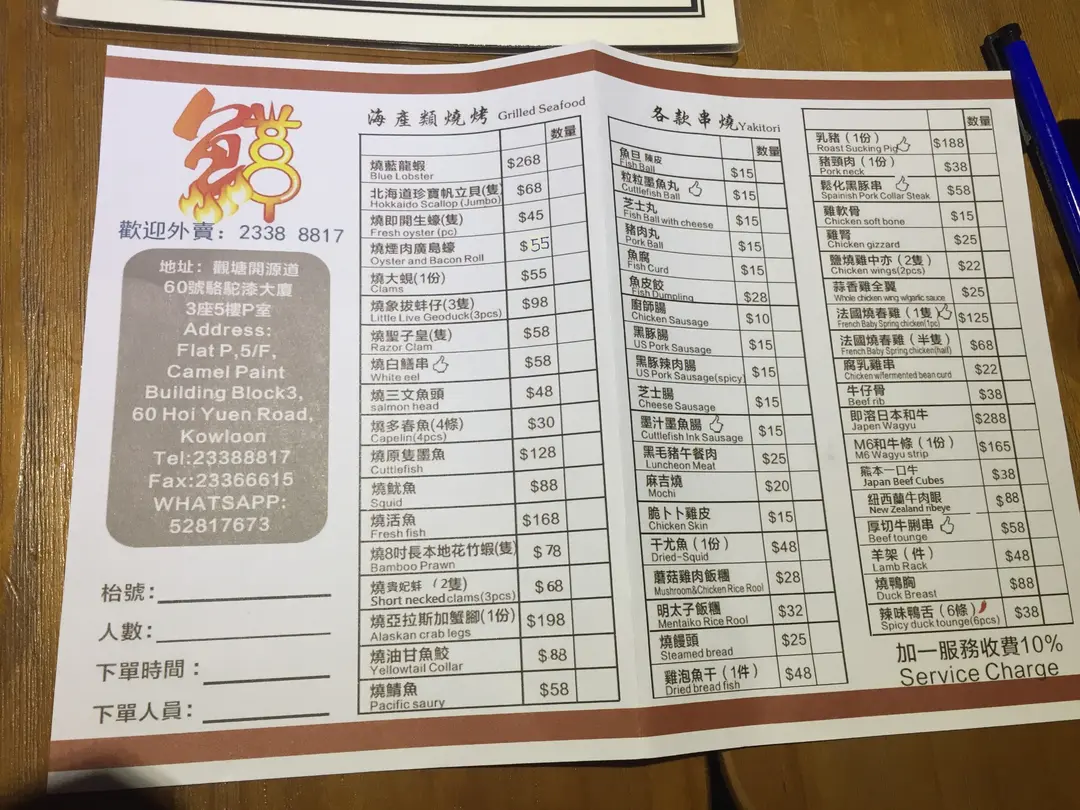 鱻
歡迎外賣：2338 8817
地址：觀塘開源道
60號駱駝漆大廈
3座5樓P室
Address:
Flat P,5/F,
Camel Paint
Building Block3,
60 Hoi Yuen Road,
Kowloon
Tel:23388817
Fax:23366615
WHATSAPP:
52817673
枱號：
人數：
下單時間：
下單人員：
海產類燒烤 Grilled Seafood
數量
燒藍龍蝦 $268
Blue Lobster
北海道珍寶帆立貝(隻) $68
Hokkaido Scallop (Jumbo)
燒即開生蠔(隻) $45
Fresh oyster (pc)
燒煙肉廣島蠔 $55
Oyster and Bacon Roll
燒大蜆(1份) $55
Clams
燒象拔蚌仔(3隻) $98
Little Live Geoduck(3pcs)
燒聖子皇(隻) $58
Razor Clam
燒白鱔串 $58
White eel
燒三文魚頭 $48
salmon head
燒多春魚(4條) $30
Capelin(4pcs)
燒原隻墨魚 $128
Cuttlefish
燒魷魚 $88
Squid
燒活魚 $168
Fresh fish
燒8吋長本地花竹蝦(隻) $78
Bamboo Prawn
燒貴妃蚌（2隻） $68
Short necked clams(3pcs)
燒亞拉斯加蟹腳(1份) $198
Alaskan crab legs
燒油甘魚鮫 $88
Yellowtail Collar
燒鯖魚 $58
Pacific saury
各款串燒 Yakitori
數量
魚旦 陳皮 $15
Fish Ball
粒粒墨魚丸 $15
Cuttlefish Ball
芝士丸 $15
Fish Ball with cheese
豬肉丸 $15
Pork Ball
魚腐 $15
Fish Curd
魚皮餃 $28
Fish Dumpling
廚師腸 $10
Chicken Sausage
黑豚腸 $15
US Pork Sausage
黑豚辣肉腸 $15
US Pork Sausage(spicy)
芝士腸 $15
Cheese Sausage
墨汁墨魚腸 $15
Cuttlefish Ink Sausage
黑毛豬午餐肉 $25
Luncheon Meat
麻吉燒 $20
Mochi
脆卜卜雞皮 $15
Chicken Skin
干尤魚（1份） $48
Dried-Squid
蘑菇雞肉飯糰 $28
Mushroom&Chicken Rice Rool
明太子飯糰 $32
Mentaiko Rice Rool
燒饅頭 $25
Steamed bread
雞泡魚干（1件） $48
Dried bread fish
數量
乳豬（1份） $188
Roast Sucking Pig
豬頸肉（1份） $38
Pork neck
鬆化黑豚串 $58
Spainish Pork Collar Steak
雞軟骨 $15
Chicken soft bone
雞腎 $25
Chicken gizzard
鹽燒雞中亦（2隻） $22
Chicken wings(2pcs)
蒜香雞全翼 $25
Whole chicken wing w/garlic sauce
法國燒春雞（1隻） $125
French Baby Spring chicken(1pc)
法國燒春雞（半隻） $68
French Baby Spring chicken(half)
腐乳雞串 $22
Chicken w/fermented bean curd
牛仔骨 $38
Beef rib
即溶日本和牛 $288
Japen Wagyu
M6和牛條（1份） $165
M6 Wagyu strip
熊本一口牛 $38
Japan Beef Cubes
紐西蘭牛肉眼 $88
New Zealand ribeye
厚切牛脷串 $58
Beef tounge
羊架（件） $48
Lamb Rack
燒鴨胸 $88
Duck Breast
辣味鴨舌（6條） $38
Spicy duck tounge(6pcs)
加一服務收費10%
Service Charge